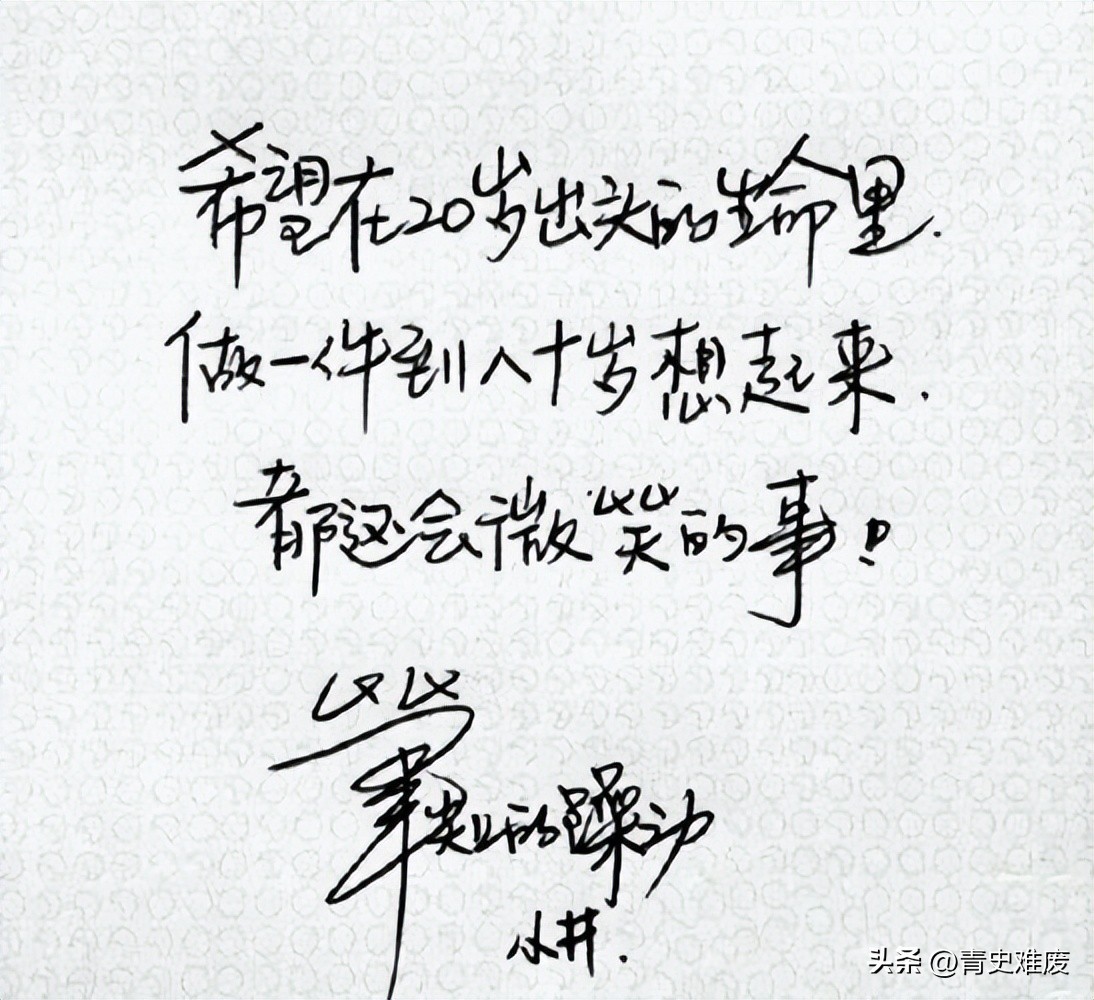 希望在20岁出头的生命里.
做一件到八十岁想起来.
都还会微笑的事!
的躁动
小井.
头条 @青史难废